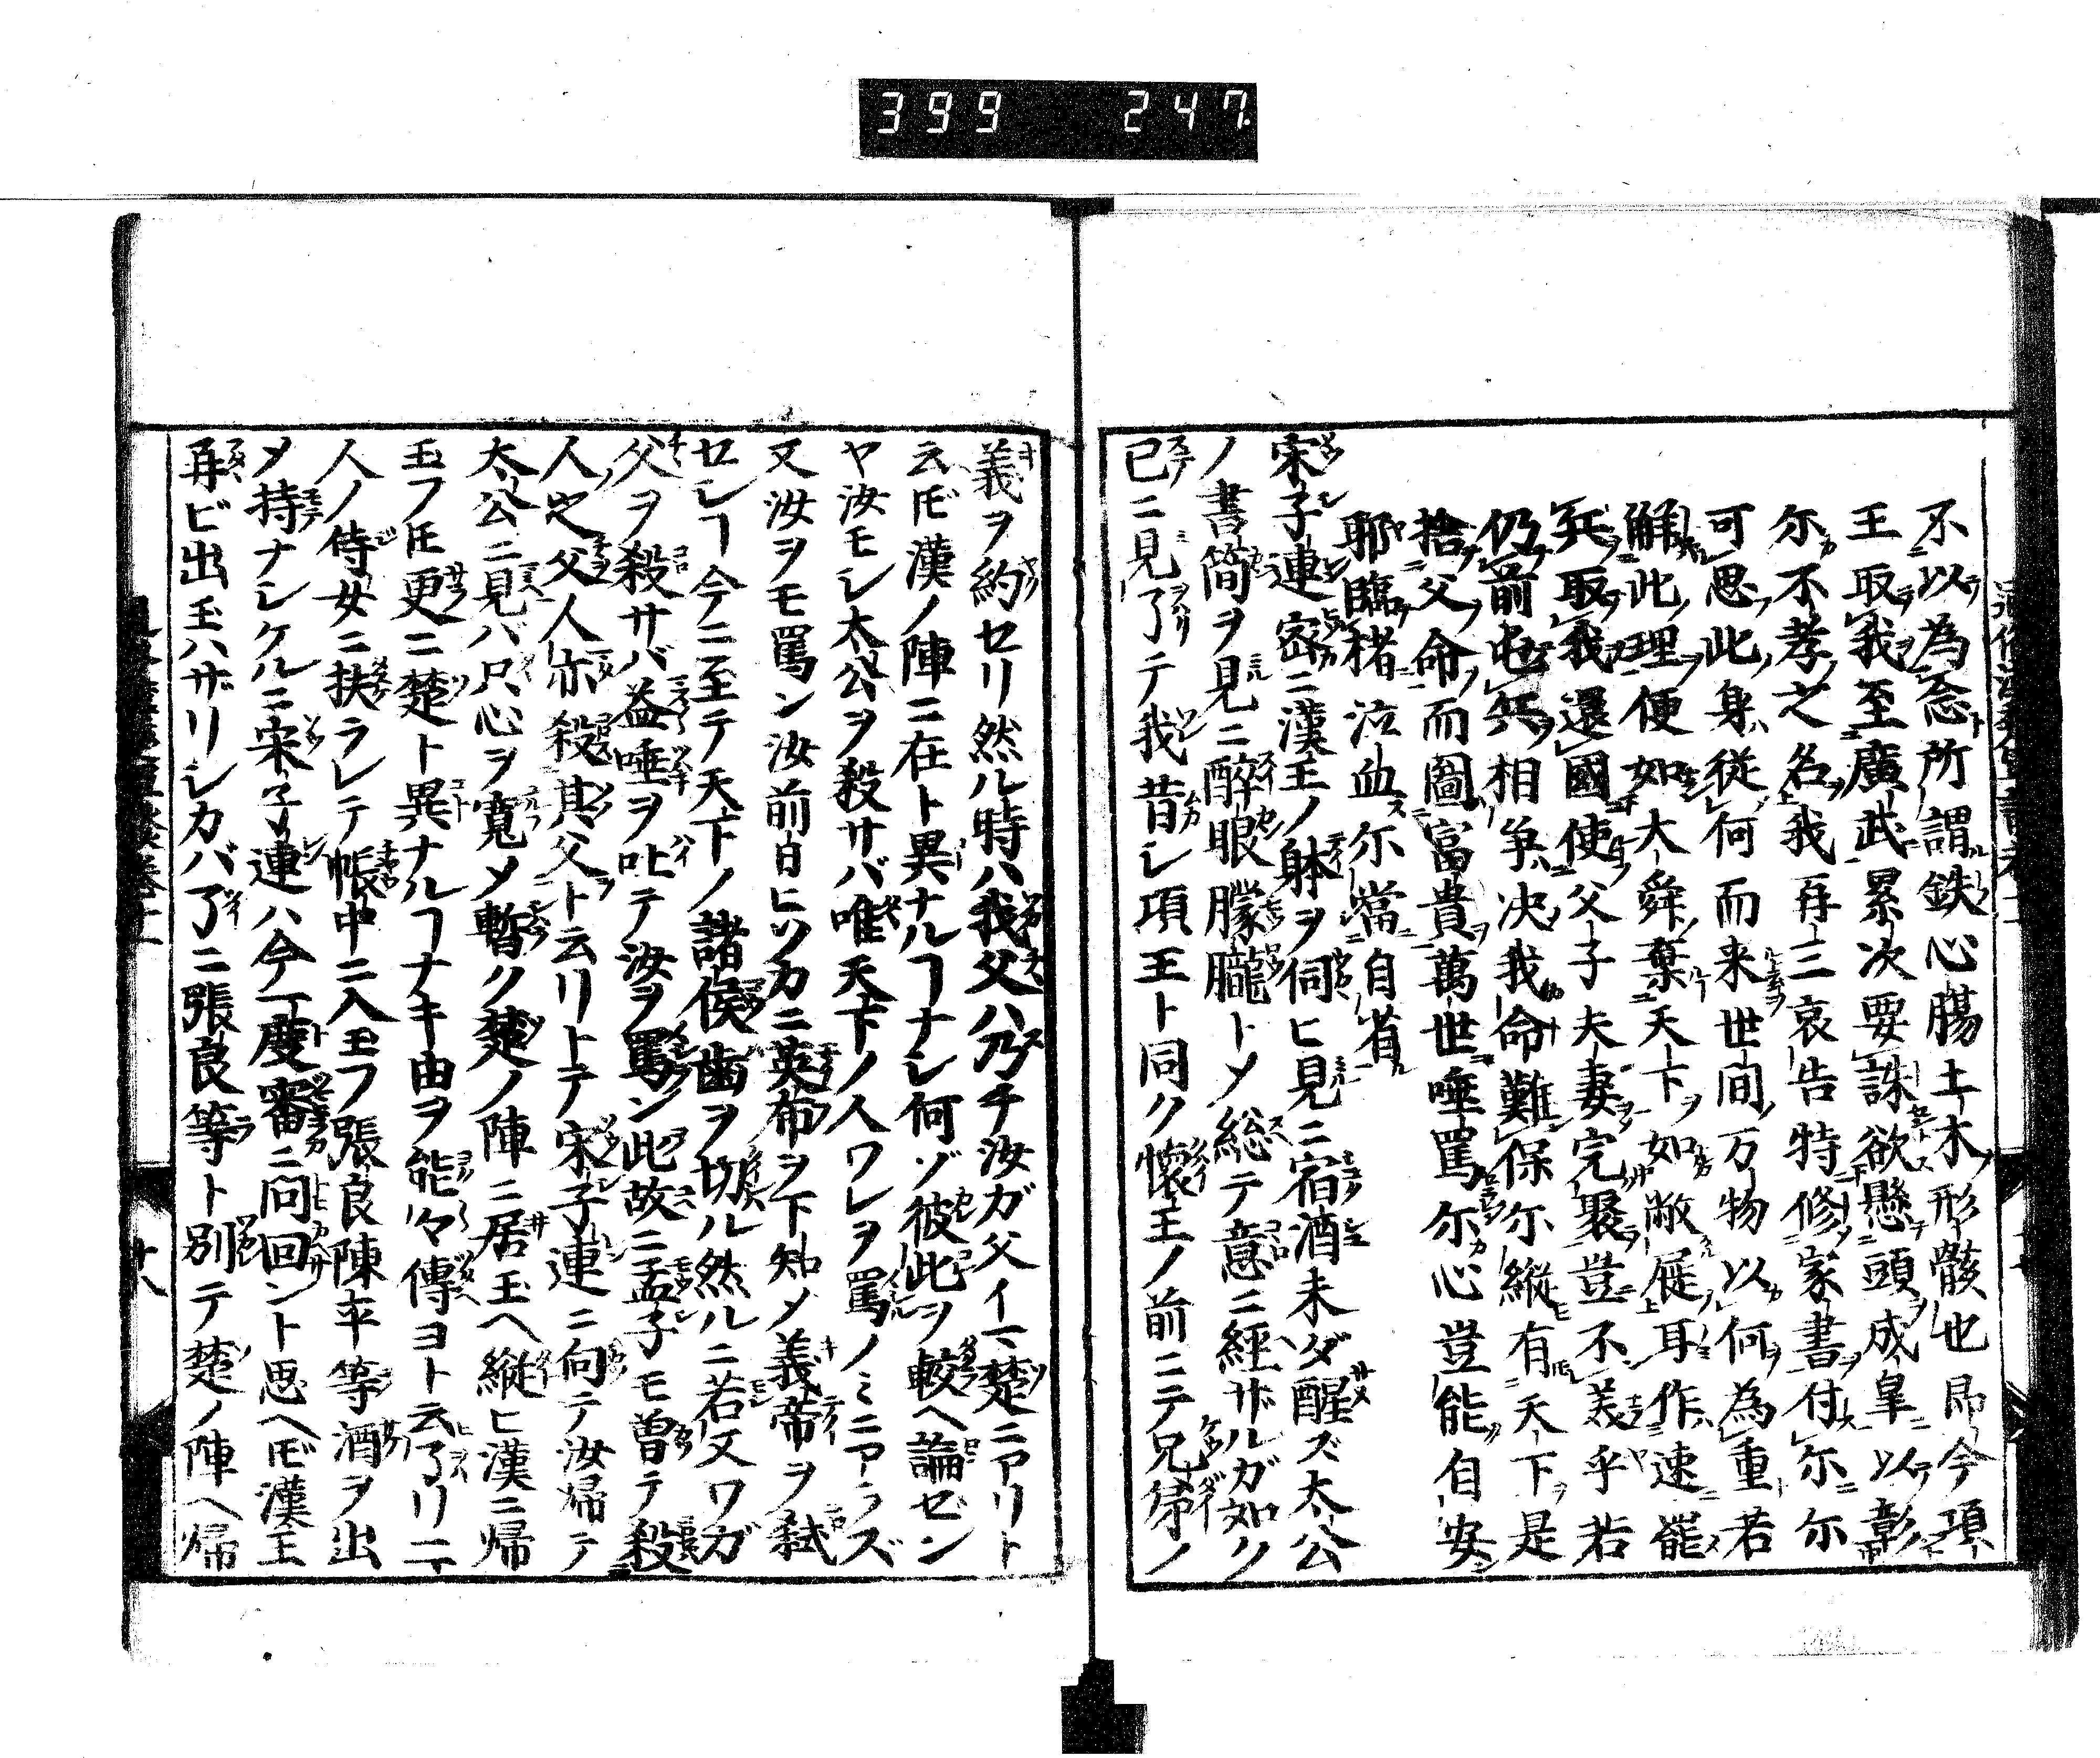 399 247.
不以為念所謂鉄心腸土木形骸也即今項
王取我至廣武累次要誅欲懸頭成皐以彰
尓不孝之名我再三哀告特修家書付尓尓
可思此身従何而来世間万物以何為重若
解此理便如大舜棄天下如敝屣耳作速罷
兵取我還國使父子夫妻完聚豈不美乎若
仍前屯兵相争决我命難保尓縦有天下是
捨父命而圖富貴萬世唾罵尓心豈能自安
耶臨楮泣血尓當自省
宋子連密ニ漢王ノ躰ヲ伺ヒ見ニ宿酒未ダ醒ズ太公
ノ書簡ヲ見ニ醉眼朦朧トメ総テ意ニ經ザルガ如ク
已ニ見了テ我昔シ項王ト同ク懷王ノ前ニテ兄弟ノ
義ヲ約セリ然ル時ハ我父ハ乃チ汝ガ父イマ楚ニアリト
云ドモ漢ノ陣ニ在ト異ナルヿナシ何ゾ彼此ヲ較ヘ論ゼン
ヤ汝モシ太公ヲ殺サバ唯天下ノ人ワレヲ罵ノミニアラズ
又汝ヲモ罵ン汝前日ヒソカニ英布ヲ下知メ義帝ヲ弑
セシヿ今ニ至テ天下ノ諸侯歯ヲ切ル然ルニ若又ワガ
父ヲ殺サバ益唾ヲ吐テ汝ヲ罵ン此故ニ孟子モ曽テ殺
人之父人亦殺其父ト云リトテ宋子連ニ向テ汝帰テ
太公ニ見ハ只心ヲ寛メ暫ク楚ノ陣ニ居玉ヘ縦ヒ漢ニ帰
玉フトモ更ニ楚ト異ナルヿナキ由ヲ能々傳ヨト云了リ二
人ノ侍女ニ扶ラレテ帳中ニ入玉フ張良陳平等酒ヲ出
メ持ナシケルニ宋子連ハ今一度審ニ問回ント思ヘドモ漢王
再ビ出玉ハザリシカバ了ニ張良等ト別テ楚ノ陣ヘ帰
廿八